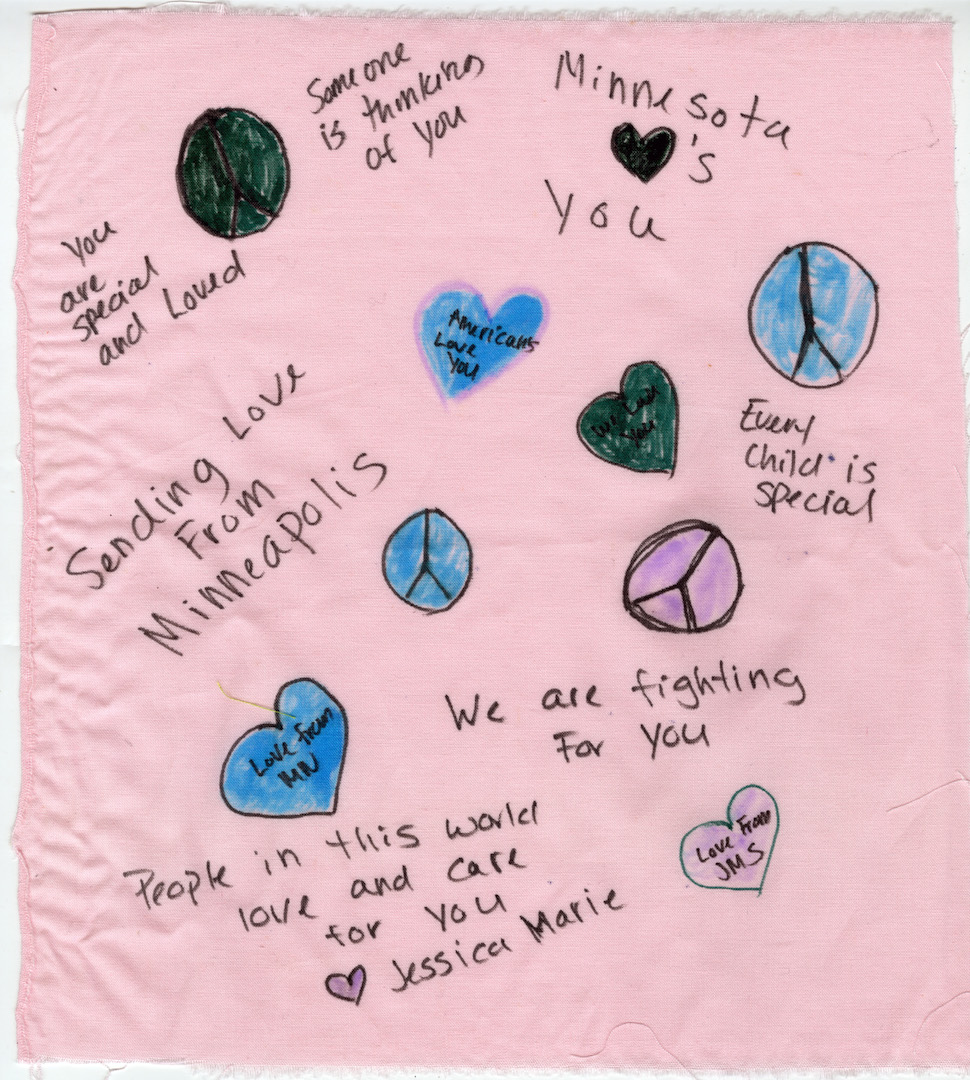 Someone
is thinking
of you
Minnesota
♥'s
You
You
are
special
and Loved
Americans
Love
You
We Love
You
Every
Child is
special
Sending Love
From
Minneapolis
We are fighting
For you
Love From
MN
Love From
JMS
People in this world
love and care
for you
♥ Jessica Marie